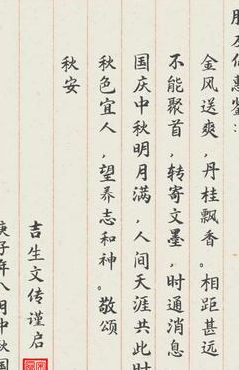 金风送爽，丹桂飘香。相距甚远
不能聚首，转寄文墨，时通消息
国庆中秋明月满，人间天涯共此时
秋色宜人，望养志和神。敬颂
秋安
吉生文传谨启
庚子年八月中秋国